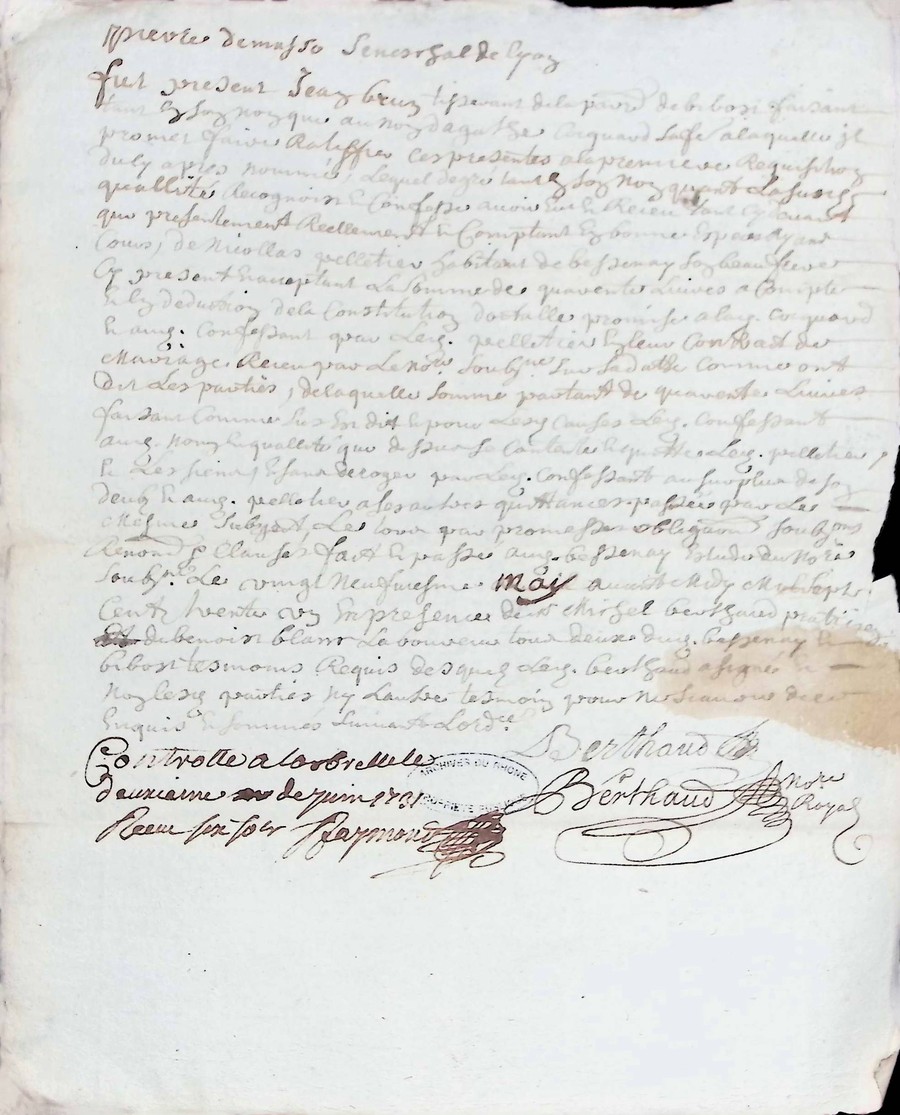 pierre demasso Seneschal de lyon
fut present Jean brun tisserant de la parroisse de bibost faisant
tant en son nom que au nom dagathe Coquard Sa fe a laquelle il
promet faire Ratiffier Ces presentes a la premiere Requisition
du cy apres nommé, Lequel de gré tant en son nom quant La susd
quallité Recognoit et Confesse avoir Eu et Receu tant cy devant
que presentement Reellement et Comptant En bonne Espece ayant
Cours, de Nicollas pelletier habitant de bessenay son beau frere
Cy present et acceptant La Somme de quarente Livres a Compte
et En deduction de la Constitution dotalle promise a lad. Coquard
et aud. Confessant par led. pelletier En leur Contract de
Mariage Receu par Le Nore Soubne Sur Sa datte Comme ont
dit Les parties, de laquelle Somme partant de quarente Livres
faisant Comme Sus Est dit et pour Lesd Causes led. Confessant
aud. nom et quallité que dessus se Contente et quitte led. pelletier
et Les Siens et Sans deroger par led. Confessant au surplus de son
deub et aud. pelletier a ses autres quittances passées par Le
Mesme Subject, Le tout par promesses obligaons Soubmns
Renons & Clauses, fait et passé aud. bessenay Estude du Nore
Soubné. Le vingt Neufviesme May avant Midy Mil sept
Cent trente un En presence de sr Michel berthaud praticien
du benoist blanc Laboureur tous deux dud. bessenay et
bibost tesmoins Requis desquels led. berthaud a signé et
Non lesd parties Ny Lautre tesmoin pour Ne Scavoir de ce
Enquis et Sommés Suivant Lordce
Berthaud
Controllé a larbresle le
deuxieme de juin 1731
Receu six sols Raymond
Berthaud Nore Royal
ARCHIVES DU RHONE
PROPRIETE PUBLIQUE